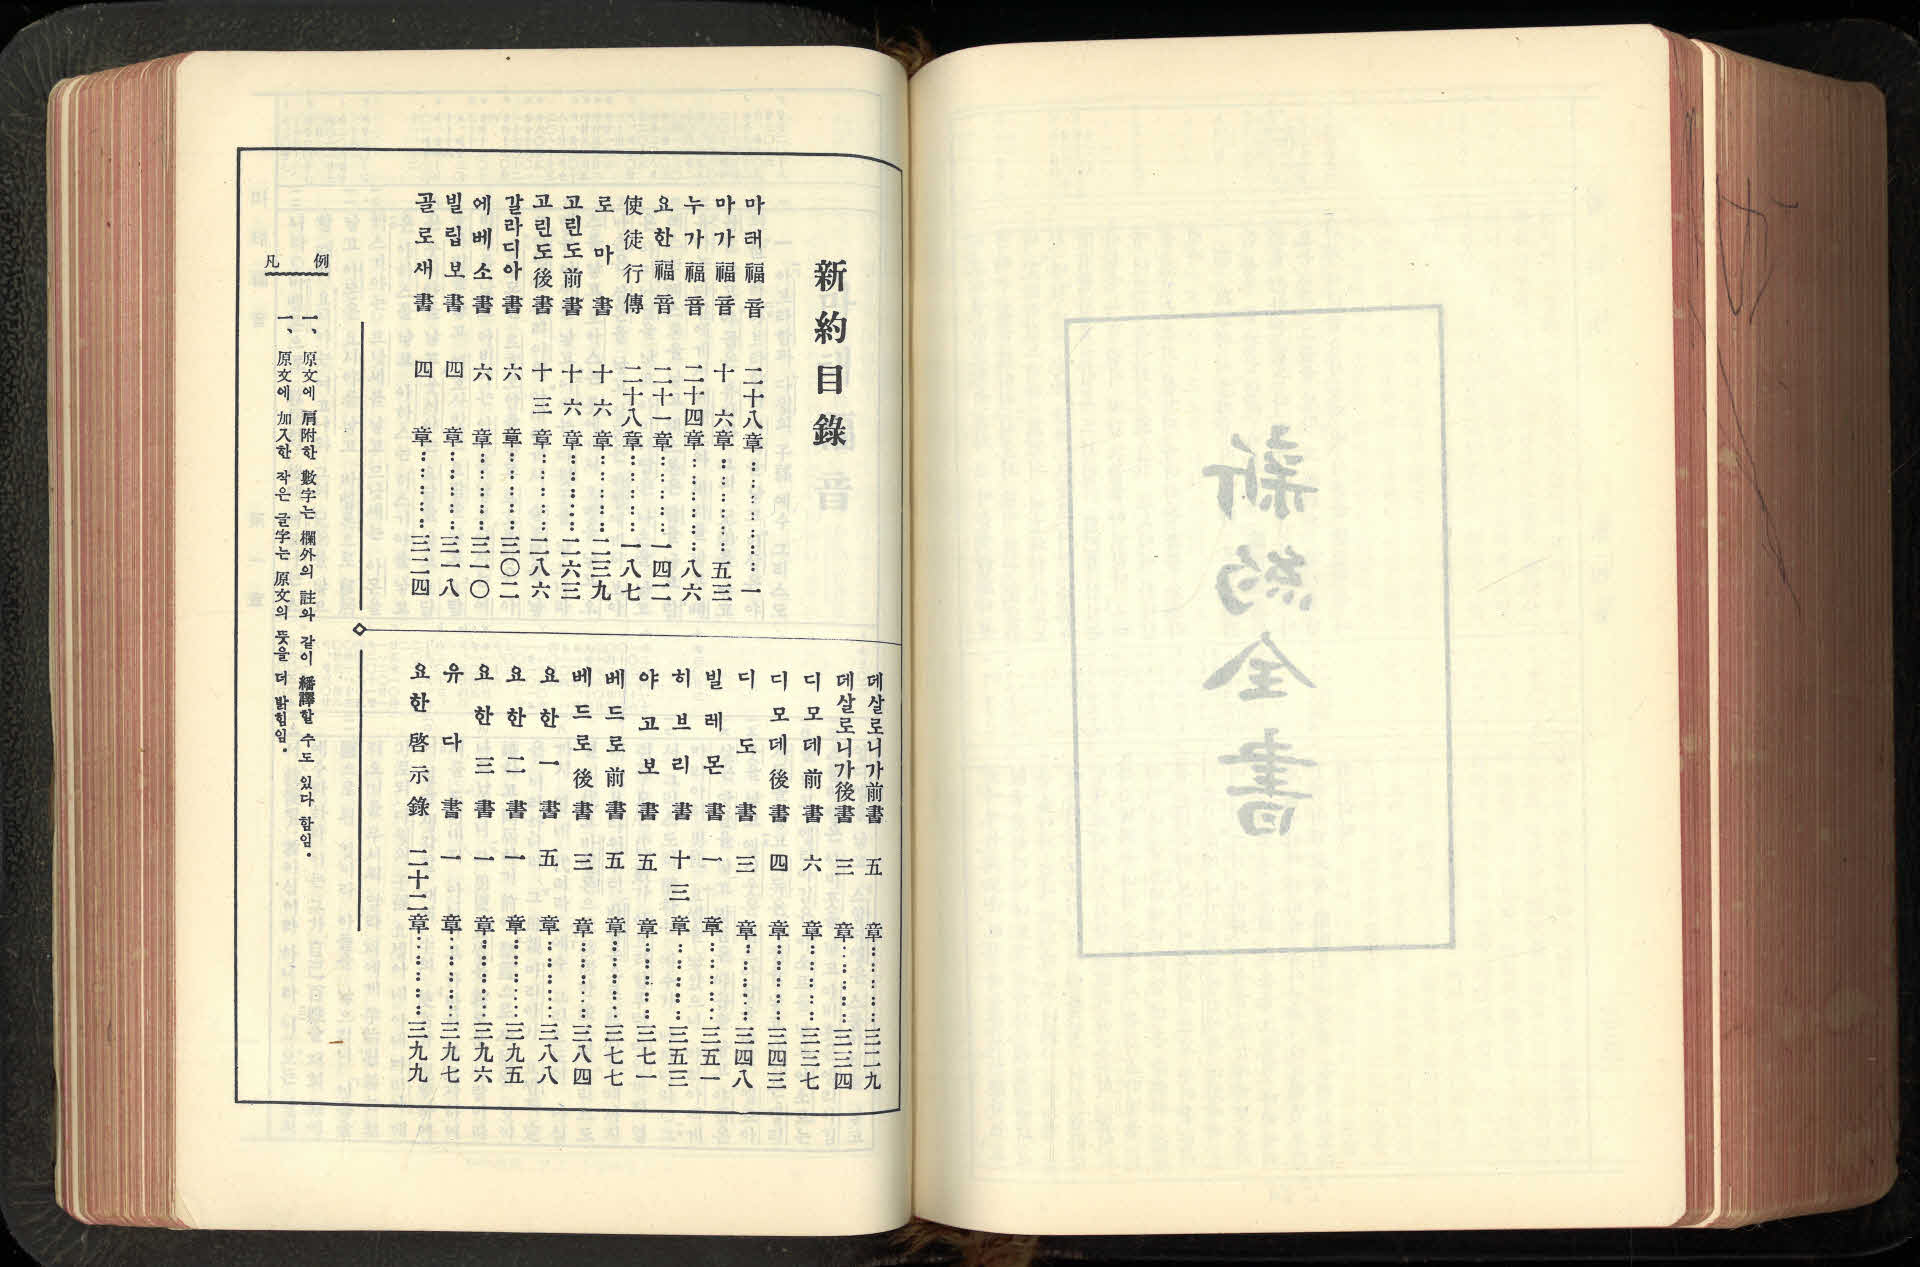 新約目錄
마태福音 二十八章………一
마가福音 十六章………五三
누가福音 二十四章………八六
요한福音 二十一章………一四二
使徒行傳 二十八章………一八七
로마書 十六章………二三九
고린도前書 十六章………二六三
고린도後書 十三章………二八六
갈라디아書 六章………三〇二
에베소書 六章………三一〇
빌립보書 四章………三一八
골로새書 四章………三二四
데살로니가前書 五章………三二九
데살로니가後書 三章………三三四
디모데前書 六章………三三七
디모데後書 四章………三四三
디도書 三章………三四八
빌레몬書 一章………三五一
히브리書 十三章………三五三
야고보書 五章………三七一
베드로前書 五章………三七七
베드로後書 三章………三八四
요한一書 五章………三八八
요한二書 一章………三九五
요한三書 一章………三九六
유다書 一章………三九七
요한啓示錄 二十二章………三九九
凡例
一、原文에 肩附한 數字는 欄外의 註와 같이 繙譯할 수도 있다 함임.
一、原文에 加入한 작은 글字는 原文의 뜻을 더 밝힘임.
新約全書